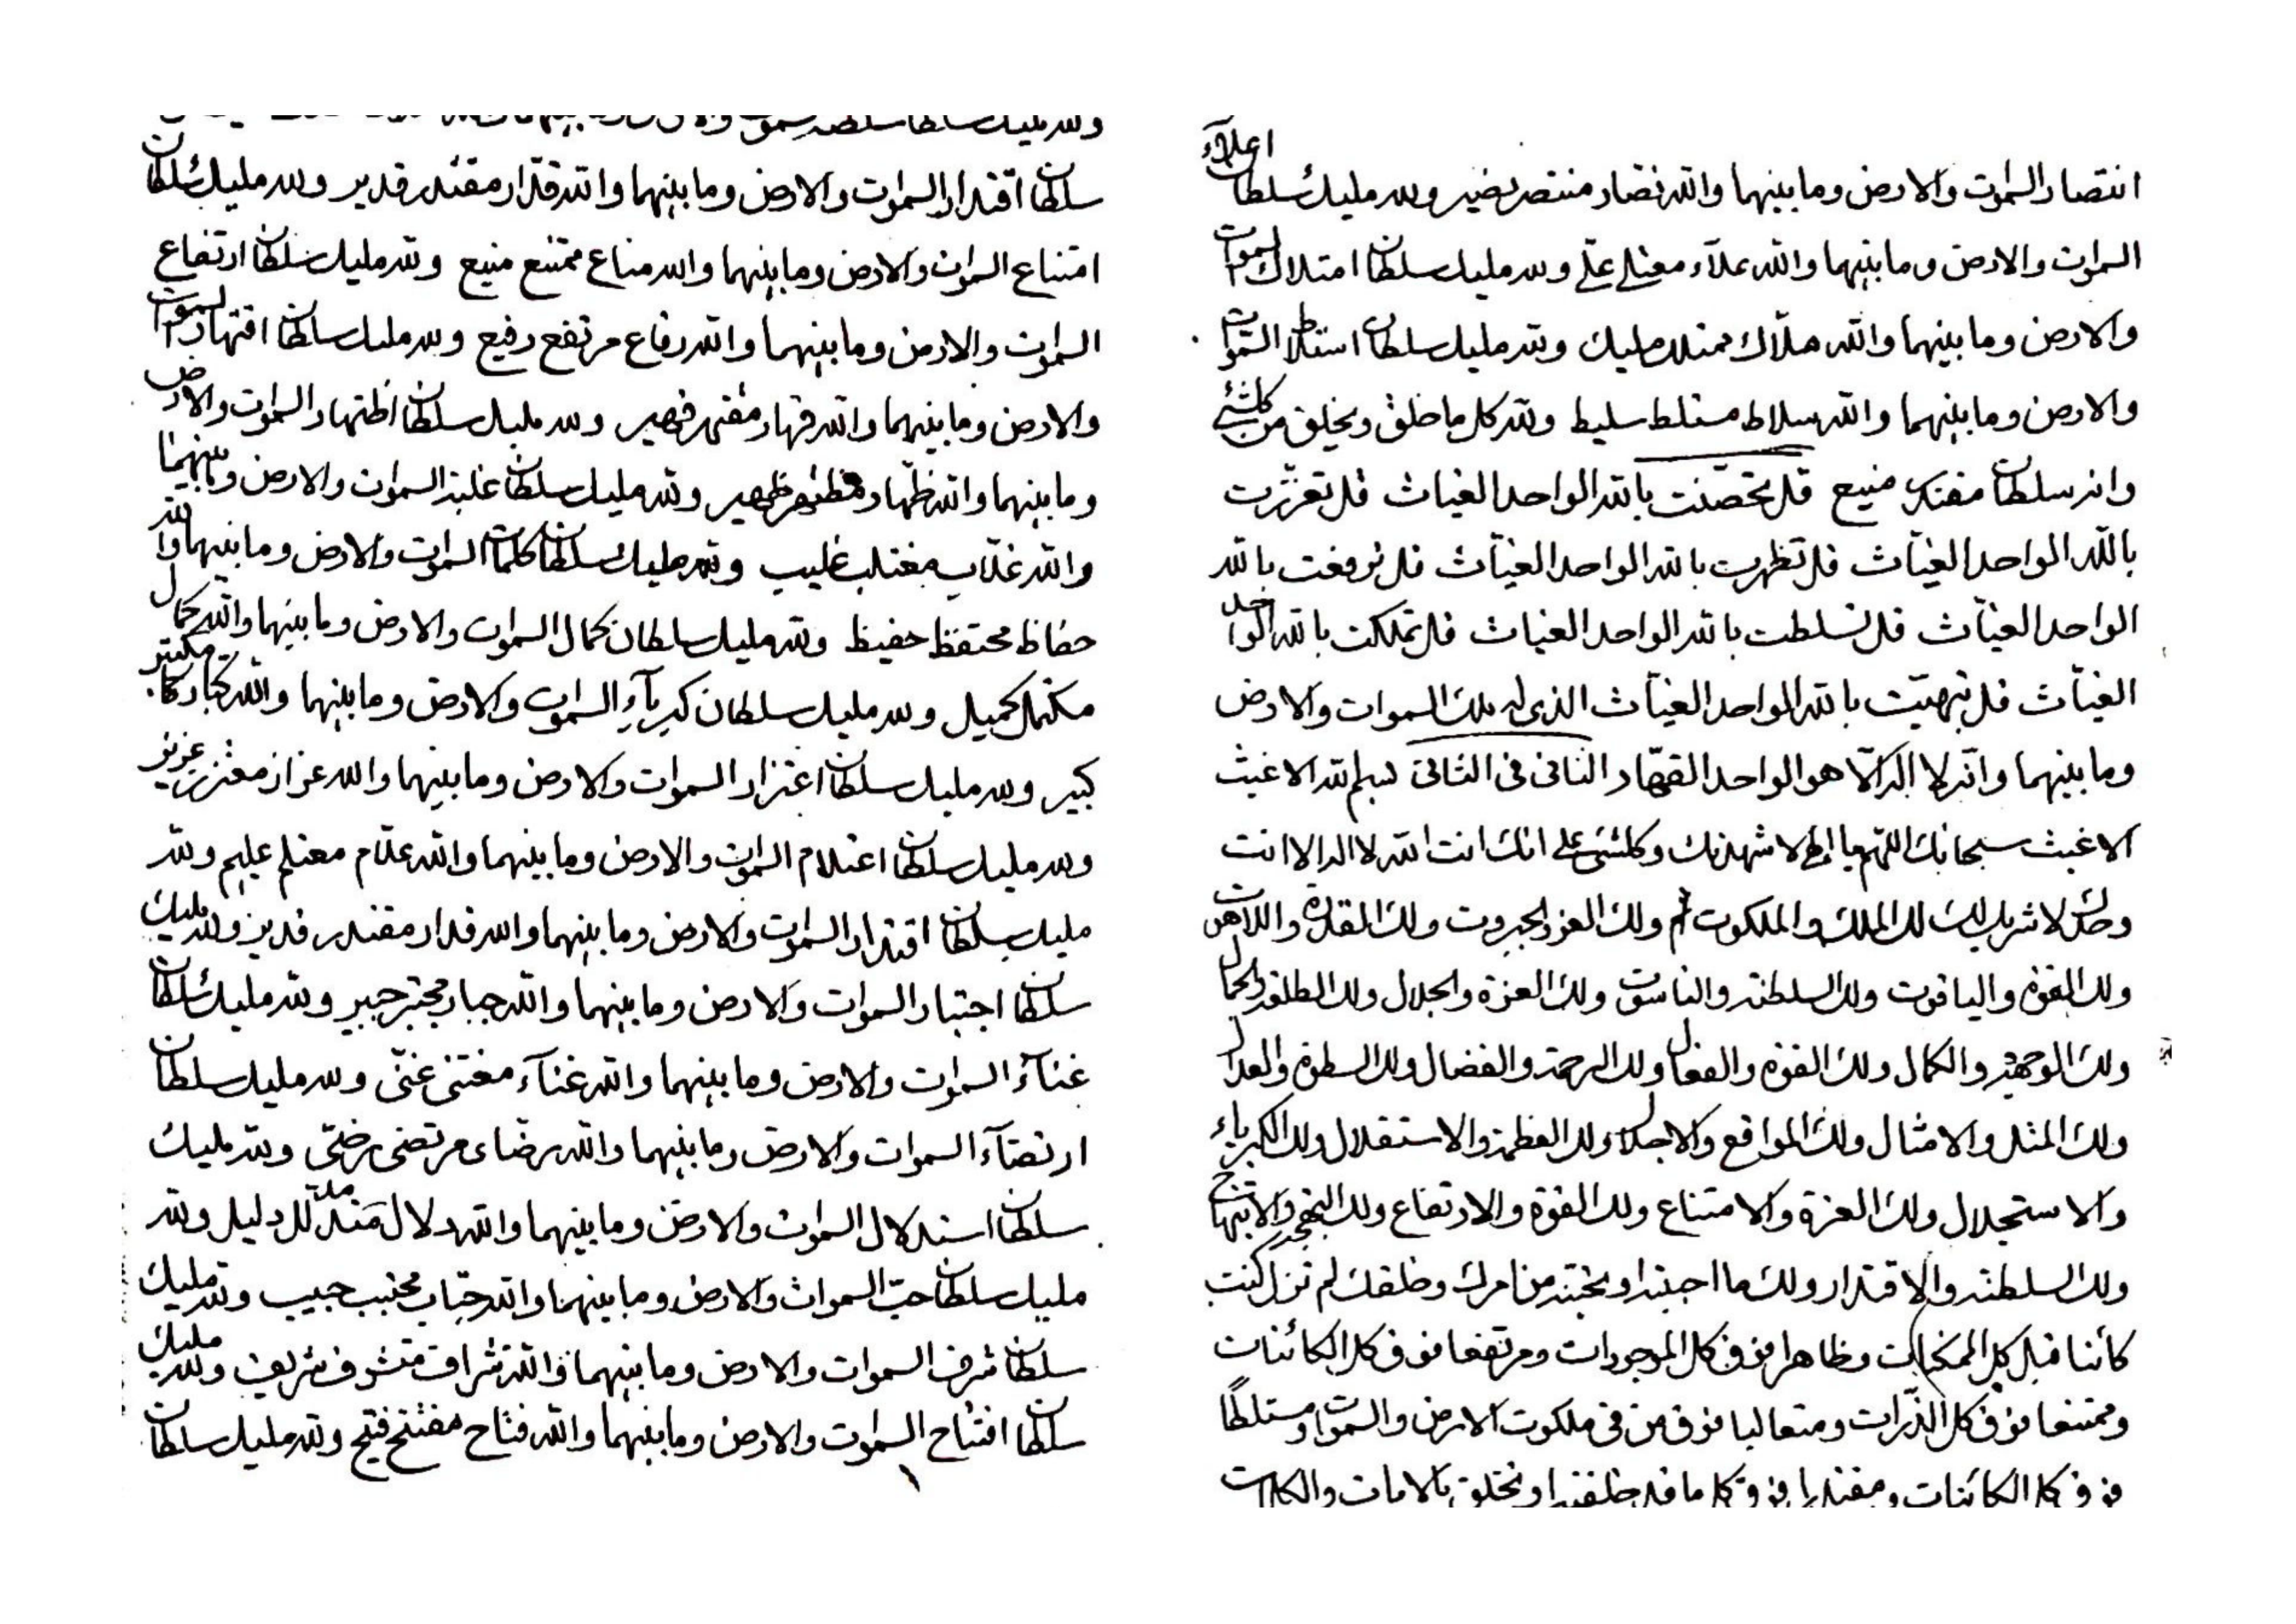 انتصار السموات والارض وما بينهما والله نصار منتصر نصير ولله مليك سلطان اعلاء
السموات والارض وما بينهما والله علاء معتلي علي ولله مليك سلطان امتلاك السموات
والارض وما بينهما والله ملاك ممتلك مليك ولله مليك سلطان استلاط السموات
والارض وما بينهما والله سلاط مستلط سليط ولله كل ما خلق ويخلق من كلشئ
وانه سلطان مقتدر منيع قل تحصنت بالله الواحد الغياث قل تعززت
بالله الواحد الغياث قل تظهرت بالله الواحد الغياث قل ترفعت بالله
الواحد الغياث قل تسلطت بالله الواحد الغياث قل تملكت بالله الواحد
الغياث قل تبهيت بالله الواحد الغياث الذي له ملك السموات والارض
وما بينهما وانه لا اله الا هو الواحد القهار الثاني في الثاني بسم الله الاغيث
الاغيث سبحانك اللهم يا الهي لاشهدنك وكلشئ على انك انت الله لا اله الا انت
وحدك لا شريك لك لك الملك والملكوت ولك العز والجبروت ولك القدرة واللاهوت
ولك القوة والياقوت ولك السلطنة والناسوت ولك العزة والجلال ولك الطلعة والجمال
ولك الوجهة والكمال ولك القوة والفعال ولك الرحمة والفضال ولك السطوة والعدال
ولك المثل والامثال ولك المواقع والاجلال ولك العظمة والاستقلال ولك الكبرياء
والاستجلال ولك العزة والامتناع ولك القوة والارتفاع ولك البهجة والابتهاج
ولك السلطنة والاقتدار ولك ما احببته او تحبنه من امرك وخلقك لم تزل كنت
كائنا قبل كل الممكنات وظاهرا فوق كل الموجودات ومرتفعا فوق كل الكائنات
وممتنعا فوق كل الذرات ومتعاليا فوق من في ملكوت الارض والسموات ومستلطا
فوق كل الكائنات ومقتدرا فوق كل ما قد خلقته او تخلق بالايات والكلمات
سلطان اقتدار السموات والارض وما بينهما والله قدار مقتدر قدير ولله مليك سلطان
امتناع السموات والارض وما بينهما والله مناع ممتنع منيع ولله مليك سلطان ارتفاع
السموات والارض وما بينهما والله رفاع مرتفع رفيع ولله مليك سلطان اقتهار السموات
والارض وما بينهما والله قهار مقتهر قهير ولله مليك سلطان اظتهار السموات والارض
وما بينهما والله ظهار مظتهر ظهير ولله مليك سلطان غلبة السموات والارض وما بينهما
والله غلاب مغتلب غليب ولله مليك سلطان كلمات السموات والارض وما بينهما والله
حفاظ محتفظ حفيظ ولله مليك سلطان كمال السموات والارض وما بينهما والله كمال
مكتمل كميل ولله مليك سلطان كبرياء السموات والارض وما بينهما والله كبار مكتبر
كبير ولله مليك سلطان اعتزاز السموات والارض وما بينهما والله عزاز معتزز عزيز
ولله مليك سلطان اعتلام السموات والارض وما بينهما والله علام معتلم عليم ولله
مليك سلطان اقتدار السموات والارض وما بينهما والله قدار مقتدر قدير ولله مليك
سلطان اجتبار السموات والارض وما بينهما والله جبار مجتبر جبير ولله مليك سلطان
غناء السموات والارض وما بينهما والله غناء مغتني غني ولله مليك سلطان
ارتضاء السموات والارض وما بينهما والله رضاء مرتضي رضي ولله مليك
سلطان استدلال السموات والارض وما بينهما والله دلال دليل ولله
مليك سلطان حب السموات والارض وما بينهما والله حباب محتبب حبيب ولله مليك
سلطان شرف السموات والارض وما بينهما والله شراف متشرف شريف ولله مليك
سلطان افتتاح السموات والارض وما بينهما والله فتاح مفتتح فتيح ولله مليك سلطان